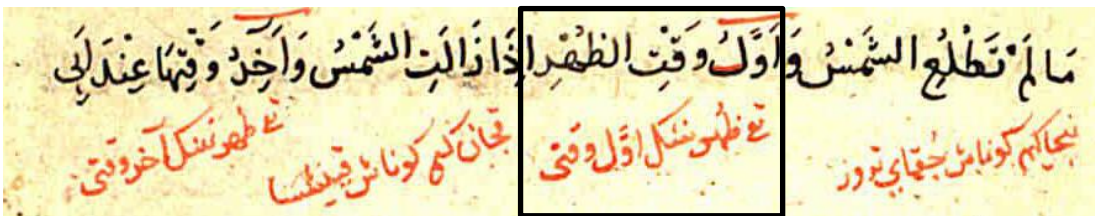 مَا لَمْ تَطْلُعِ الشَّمْسُ وَاَوَّلُ وَقْتِ الظُّهْرِ اِذَا زَالَتِ الشَّمْسُ وَآخِرُ وَقْتِهَا عِنْدَ اَبِى
كوناش جقماي تورور تى ظهر ننكل اوّل وقتى قجان كيم كوناش تى ظهر ننكل آخر وقتى